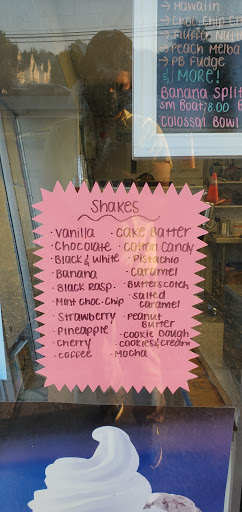 → Hawaiin
→ Choc. Chip Co
→ Fluffer Nutt
→ Peach Melba
→ PB Fudge
& MORE!
Banana Split
sm Boat/8.00
Colossal Bowl
Shakes
• Vanilla • Cake Batter
• Chocolate • Cotton Candy
• Black & White • Pistachio
• Banana • Caramel
• Black Rasp. • Butterscotch
• Mint Choc. Chip • Salted Caramel
• Strawberry • Peanut Butter
• Pineapple • Cookie Dough
• Cherry • Cookies & Cream
• Coffee • Mocha